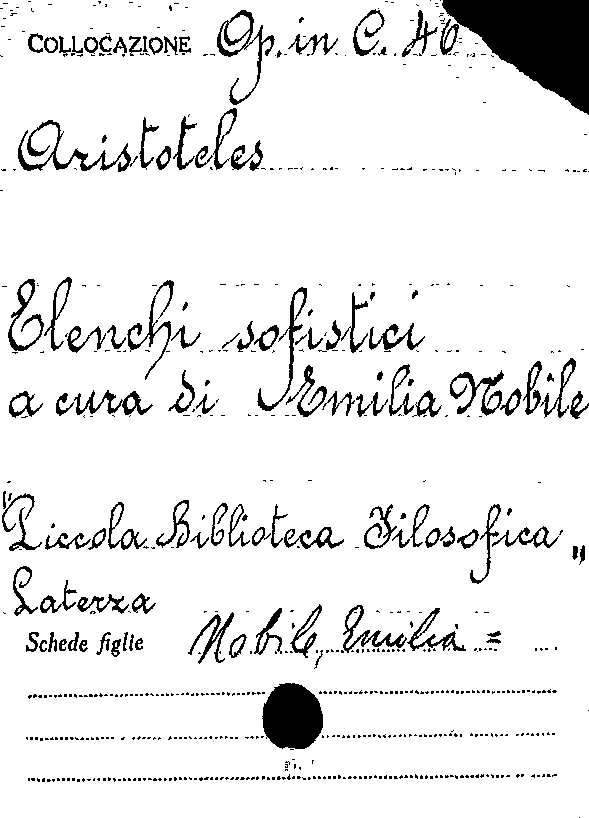 COLLOCAZIONE Op. in C. 46
Aristoteles
Elenchi sofistici
a cura di Emilia Nobile
"Piccola Biblioteca Filosofica"
Laterza
Schede figlie Nobile, Emilia =